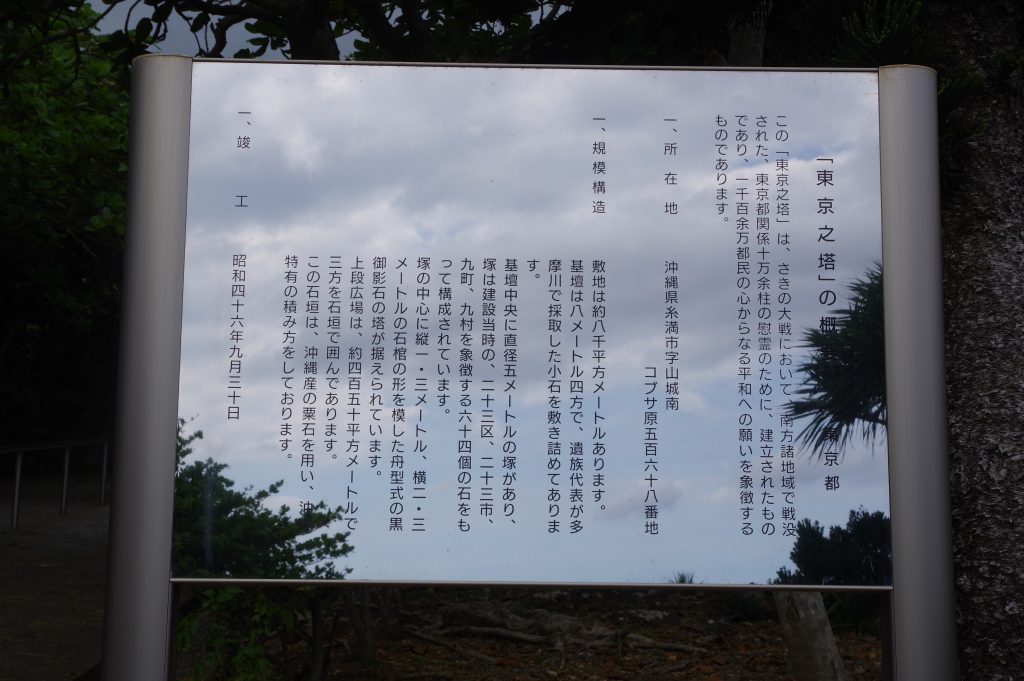 「東京之塔」の概
東京都
この「東京之塔」は、さきの大戦において、南方諸地域で戦没
された、東京都関係十万余柱の慰霊のために、建立されたもの
であり、一千百余万都民の心からなる平和への願いを象徴する
ものであります。
一、所在地 沖縄県糸満市字山城南
コブサ原五百六十八番地
一、規模構造 敷地は約八千平方メートルあります。
基壇は八メートル四方で、遺族代表が多
摩川で採取した小石を敷き詰めてありま
す。
基壇中央に直径五メートルの塚があり、
塚は建設当時の、二十三区、二十三市、
九町、九村を象徴する六十四個の石をも
って構成されています。
塚の中心に縦一・三メートル、横二・三
メートルの石棺の形を模した舟型式の黒
御影石の塔が据えられています。
上段広場は、約四百五十平方メートルで
三方を石垣で囲んであります。
この石垣は、沖縄産の粟石を用い、沖
特有の積み方をしております。
一、竣工 昭和四十六年九月三十日